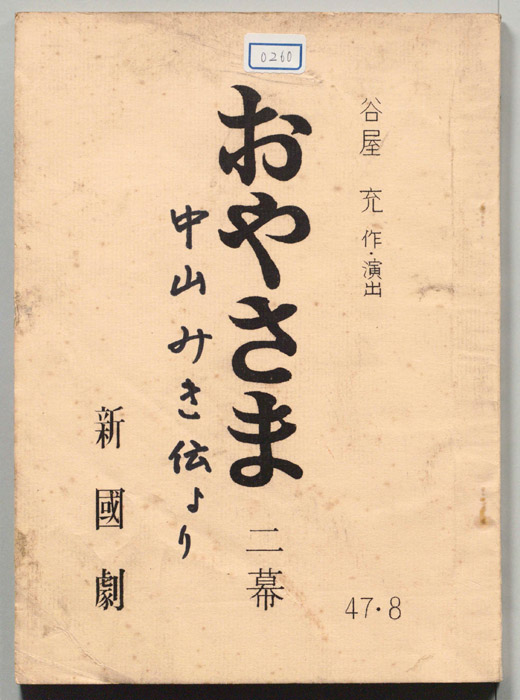 0260
谷屋 充 作・演出
おやさま 二幕
中山みき伝より
新國劇
47・8